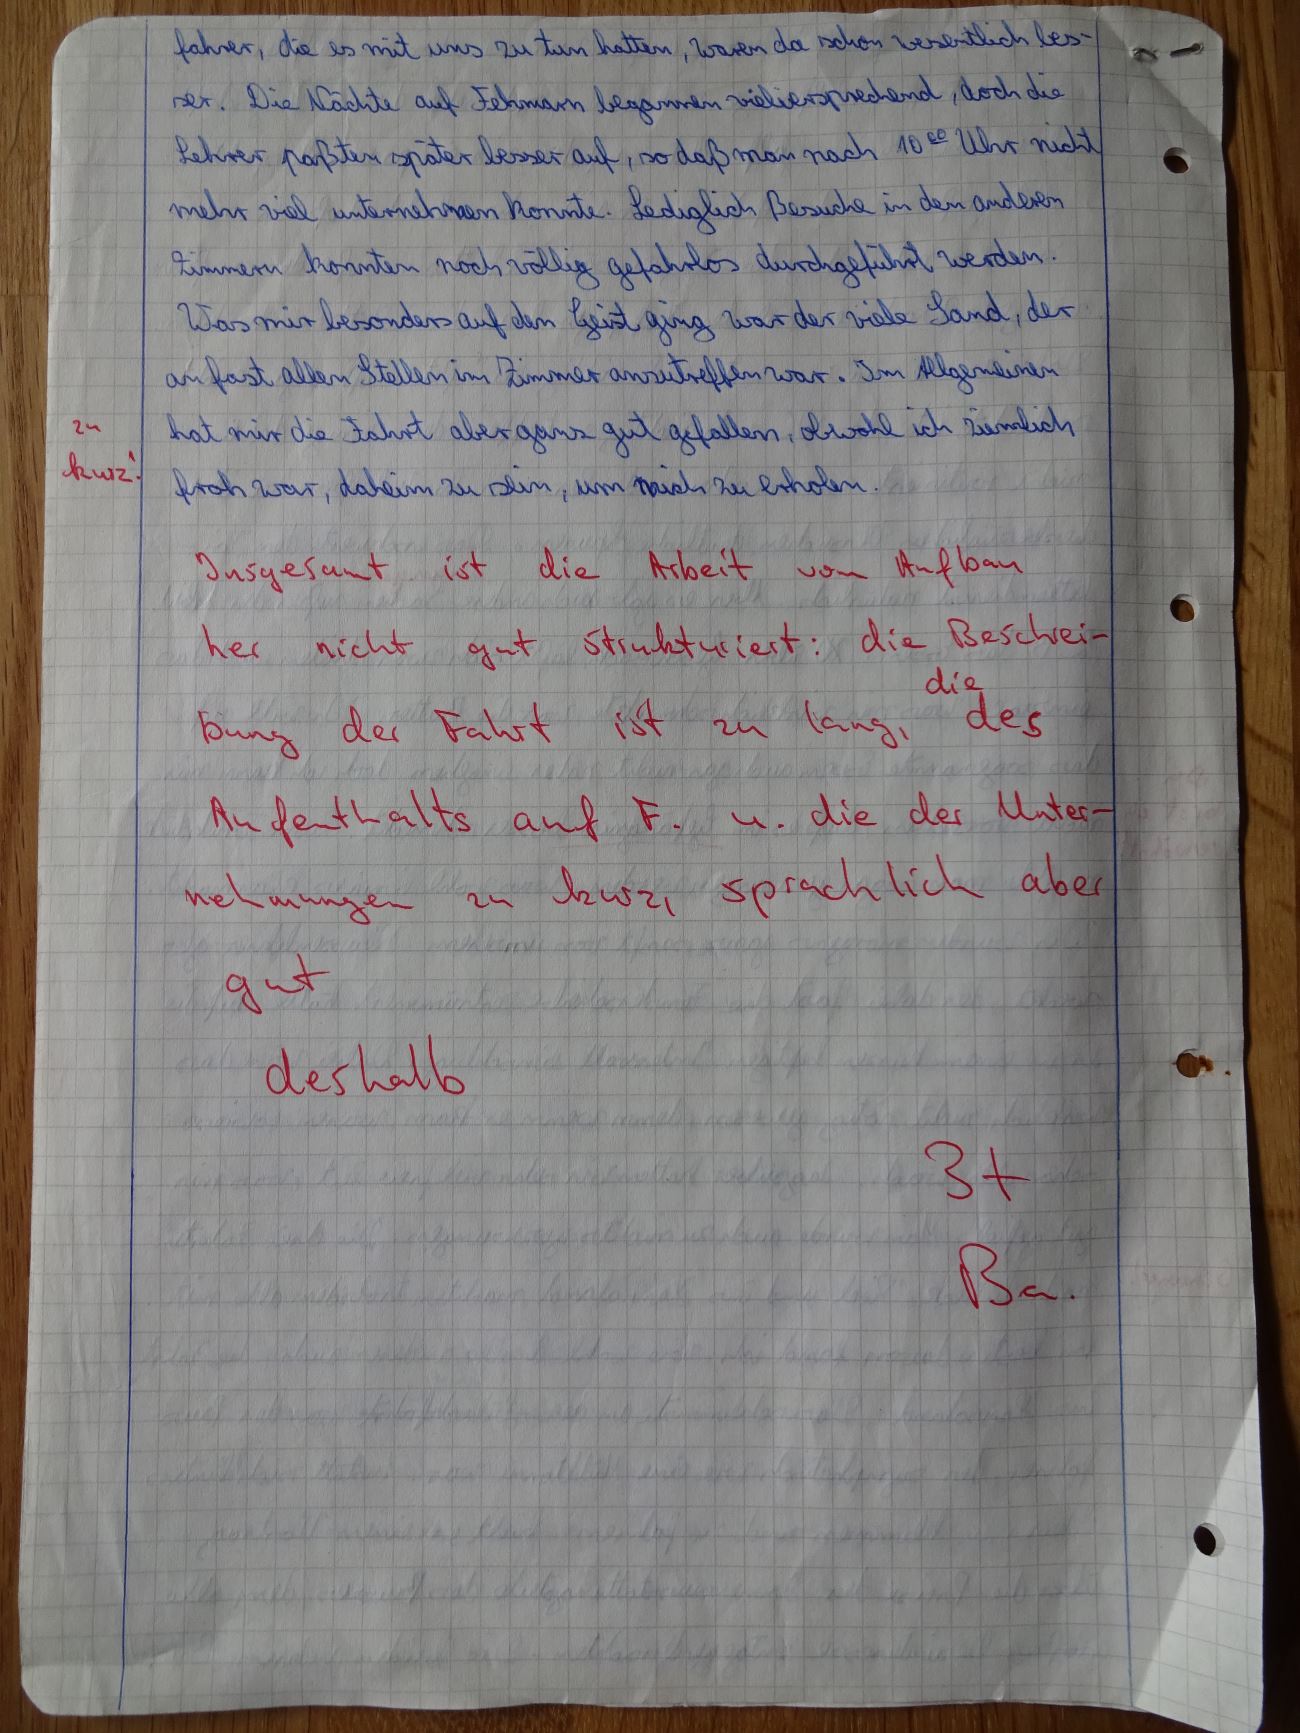 fahrer, die es mit uns zu tun hatten, waren da schon wesentlich bes-
ser. Die Nächte auf Fehmarn begannen vielversprechend, doch die
Lehrer paßten später besser auf, so daß man nach 10⁰⁰ Uhr nicht
mehr viel unternehmen konnte. Lediglich Besuche in den anderen
Zimmern konnten noch völlig gefahrlos durchgeführt werden.
Was mir besonders auf den Geist ging war der viele Sand, der
an fast allen Stellen im Zimmer anzutreffen war. Im Allgemeinen
hat mir die Fahrt aber ganz gut gefallen, obwohl ich ziemlich
froh war, daheim zu sein, um mich zu erholen.
zu
kurz!
Insgesamt ist die Arbeit vom Aufbau
her nicht gut strukturiert: die Beschrei-
bung der Fahrt ist zu lang, die des
Aufenthalts auf F. u. die der Unter-
nehmungen zu kurz, sprachlich aber
gut
deshalb
3+
Ba.